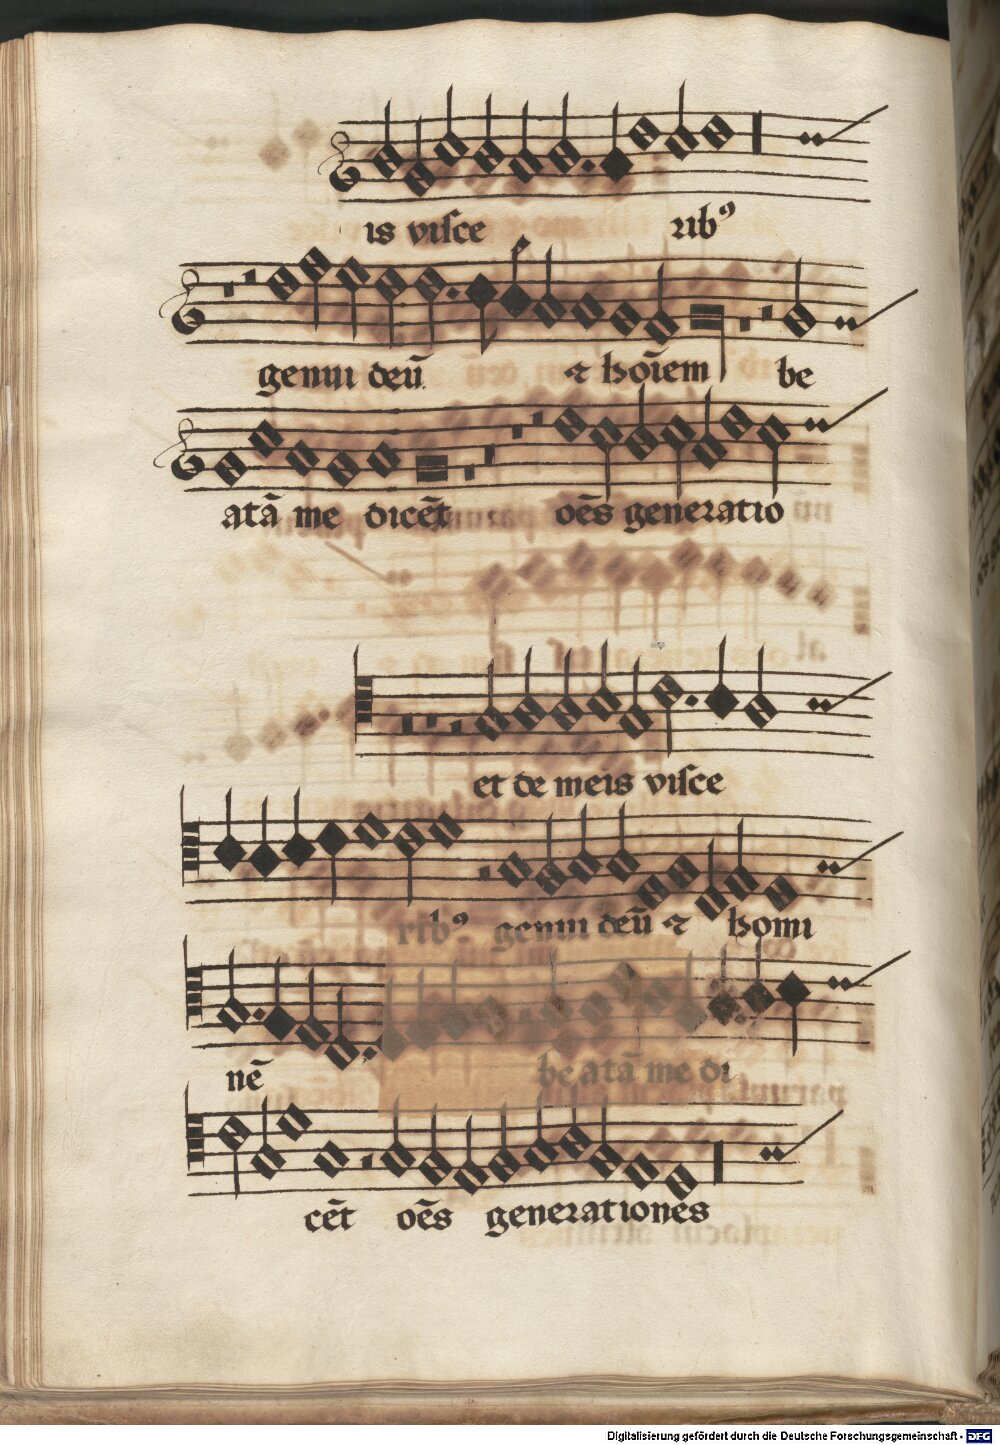 is visce ribꝯ
genui deū ⁊ hoīem be
atā me dicēt oēs generatio
et de meis visce
ribꝯ genui deū ⁊ homi
nē be atā me di
cēt oēs generationes
Digitalisierung gefördert durch die Deutsche Forschungsgemeinschaft - DFG